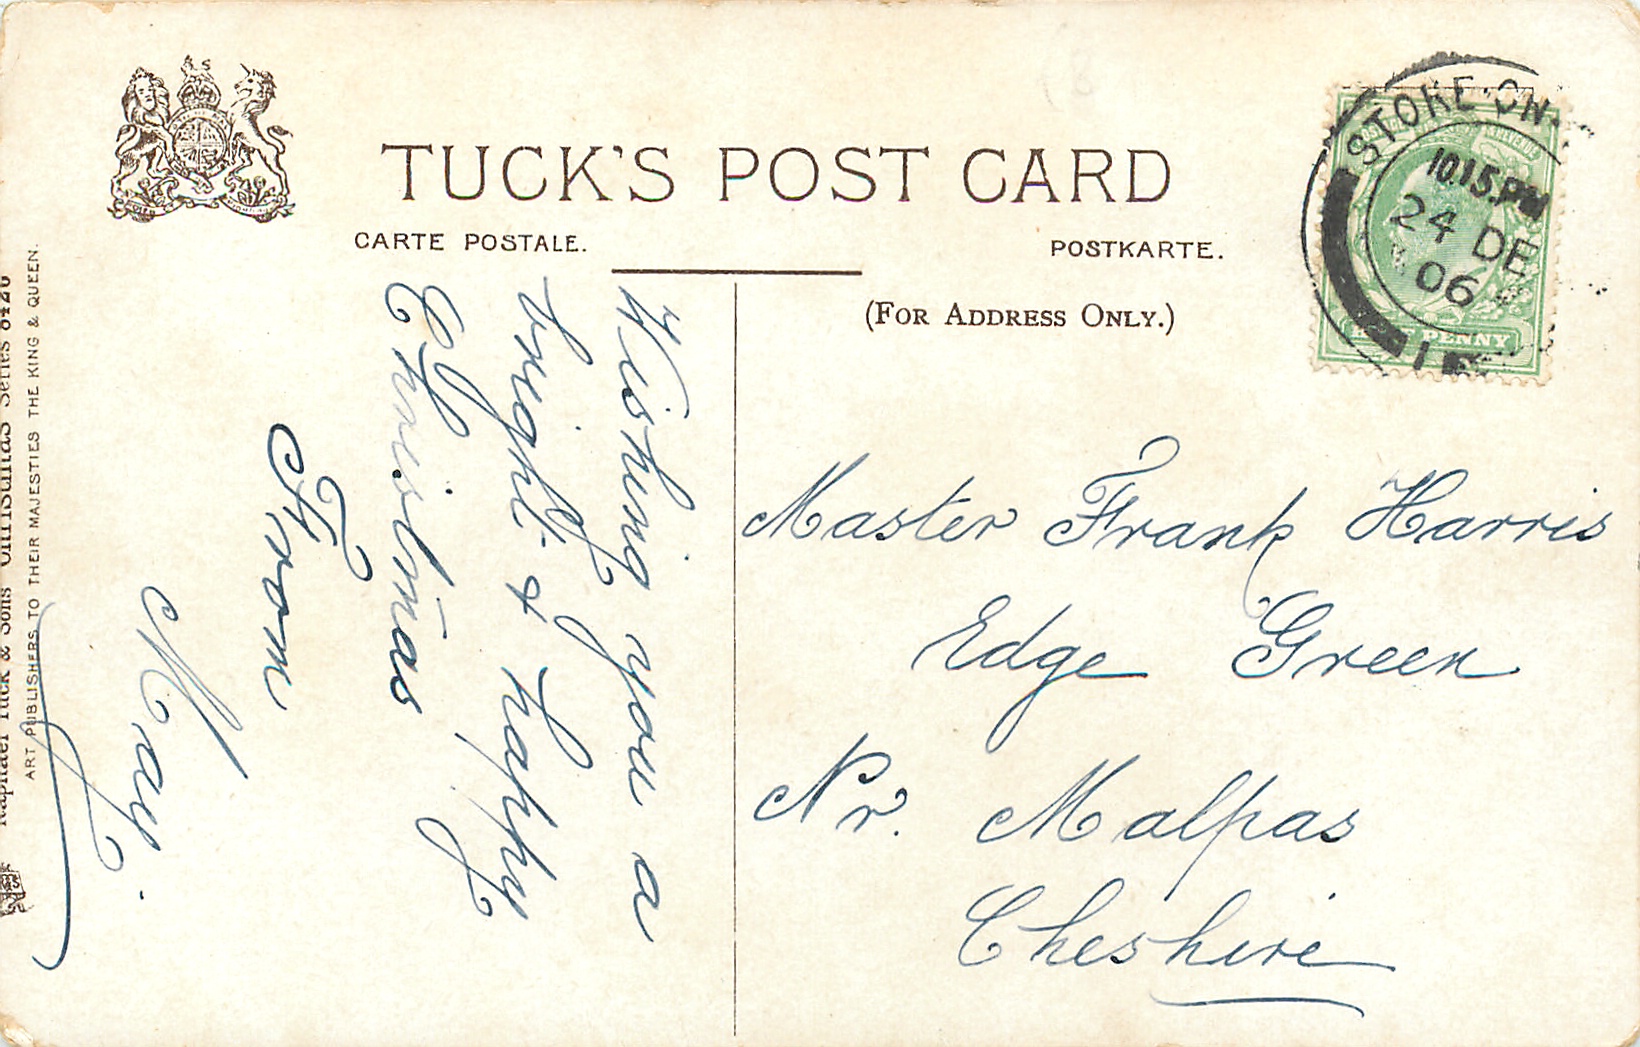 TUCK'S POST CARD
CARTE POSTALE.
POSTKARTE.
(FOR ADDRESS ONLY.)
STOKE·ON·
10.15.PM
24 DE
06
PENNY
Wishing you a
bright & happy
Christmas
From
May.
Master Frank Harris
Edge Green
Nr. Malpas
Cheshire
Raphael Tuck & Sons' Christmas Series 8420
ART PUBLISHERS TO THEIR MAJESTIES THE KING & QUEEN.